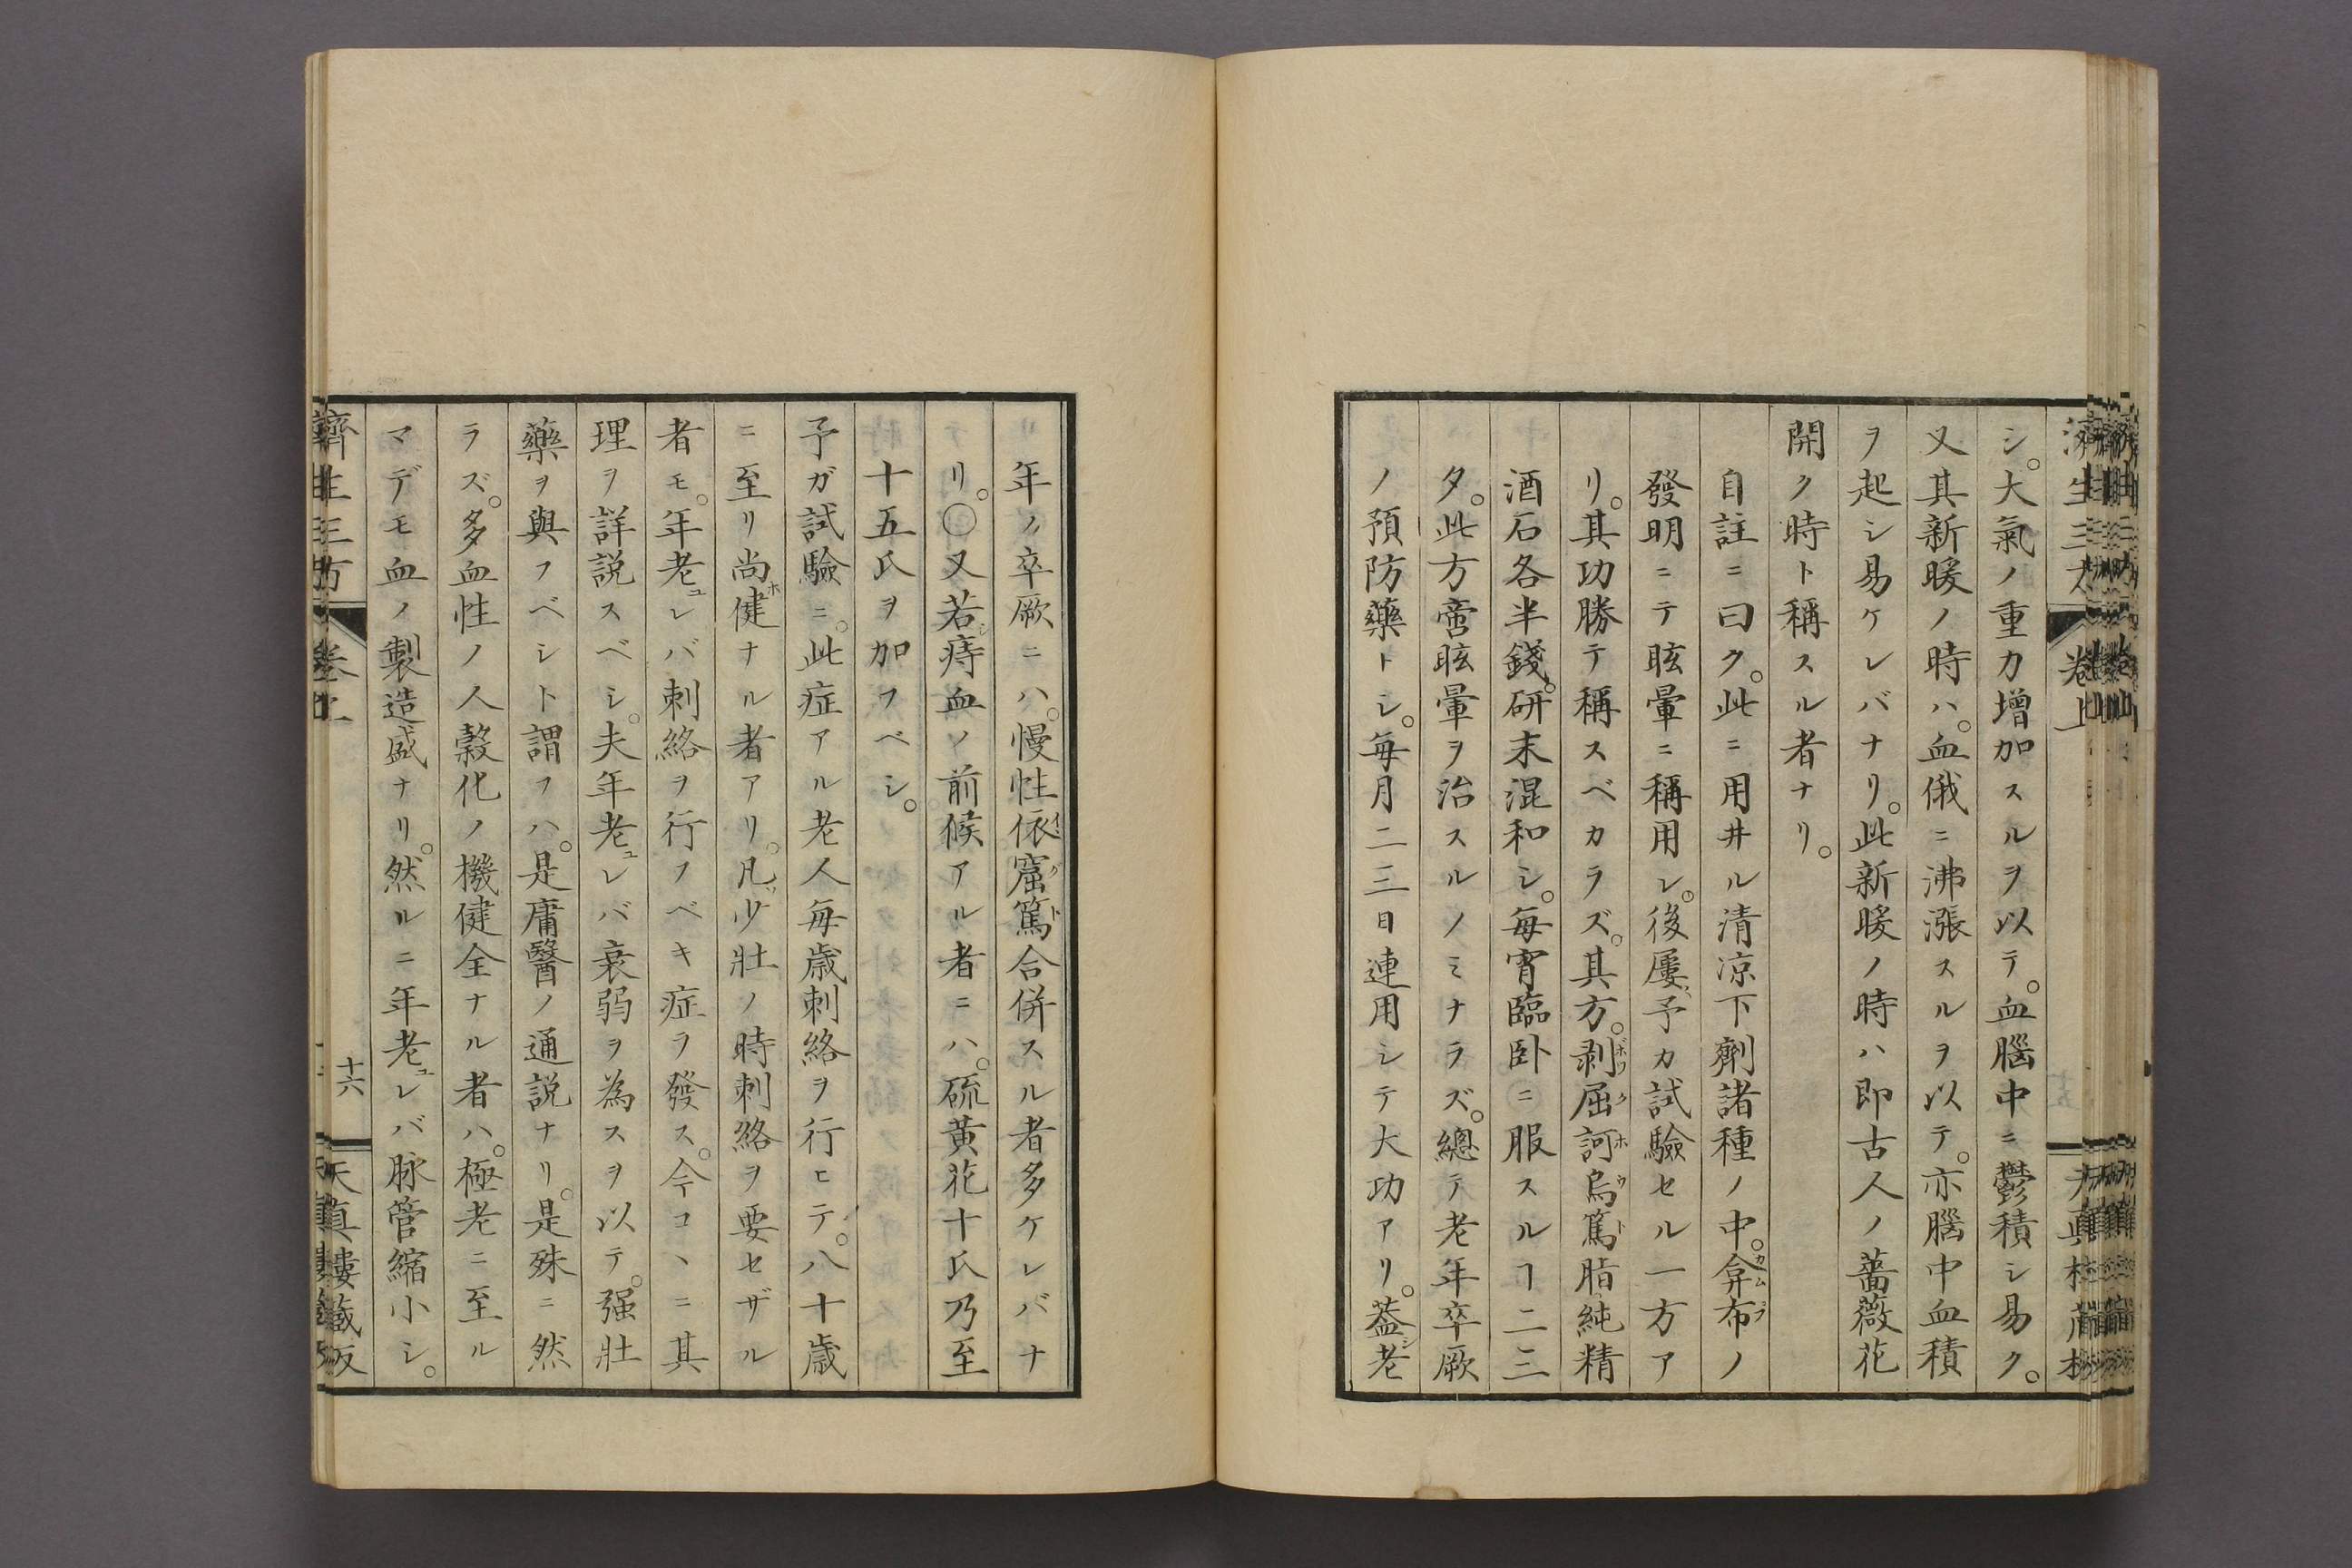 シ。大氣ノ重力増加スルヲ以テ。血腦中ニ鬱積シ易ク。
又其新暖ノ時ハ。血俄ニ沸漲スルヲ以テ。亦腦中血積
ヲ起シ易ケレバナリ。此新暖ノ時ハ即古人ノ薔薇花
開ク時ト稱スル者ナリ。
自註ニ曰ク。此ニ用井ル清凉下劑諸種ノ中。弇布ノ
發明ニテ眩暈ニ稱用シ。後屡予カ試驗セル一方ア
リ。其功勝テ稱スベカラズ。其方。剥屈訶烏篤脂純精
酒石各半錢。研末混和シ。每宵臨卧ニ服スルヿ二三
夕。此方啻眩暈ヲ治スルノミナラズ。總テ老年卒厥
ノ預防藥トシ。每月二三日連用シテ大功アリ。葢老
年ノ卒厥ニハ。慢性依窟篤合併スル者多ケレバナ
リ。〇又若痔血ノ前候アル者ニハ。硫黃花十氏乃至
十五氏ヲ加フベシ。
予ガ試驗ニ。此症アル老人每歳刺絡ヲ行ヒテ。八十歳
ニ至リ尚健ナル者アリ。凡少壯ノ時刺絡ヲ要セザル
者モ。年老レバ刺絡ヲ行フベキ症ヲ發ス。今コヽニ其
理ヲ詳説スベシ。夫年老レバ衰弱ヲ為スヲ以テ。强壯
藥ヲ與フベシト謂フハ。是庸醫ノ通説ナリ。是殊ニ然
ラズ。多血性ノ人穀化ノ機健全ナル者ハ。極老ニ至ル
マデモ血ノ製造盛ナリ。然ルニ年老レバ脉管縮小シ。
濟生三方 卷上 十六 天真樓藏板